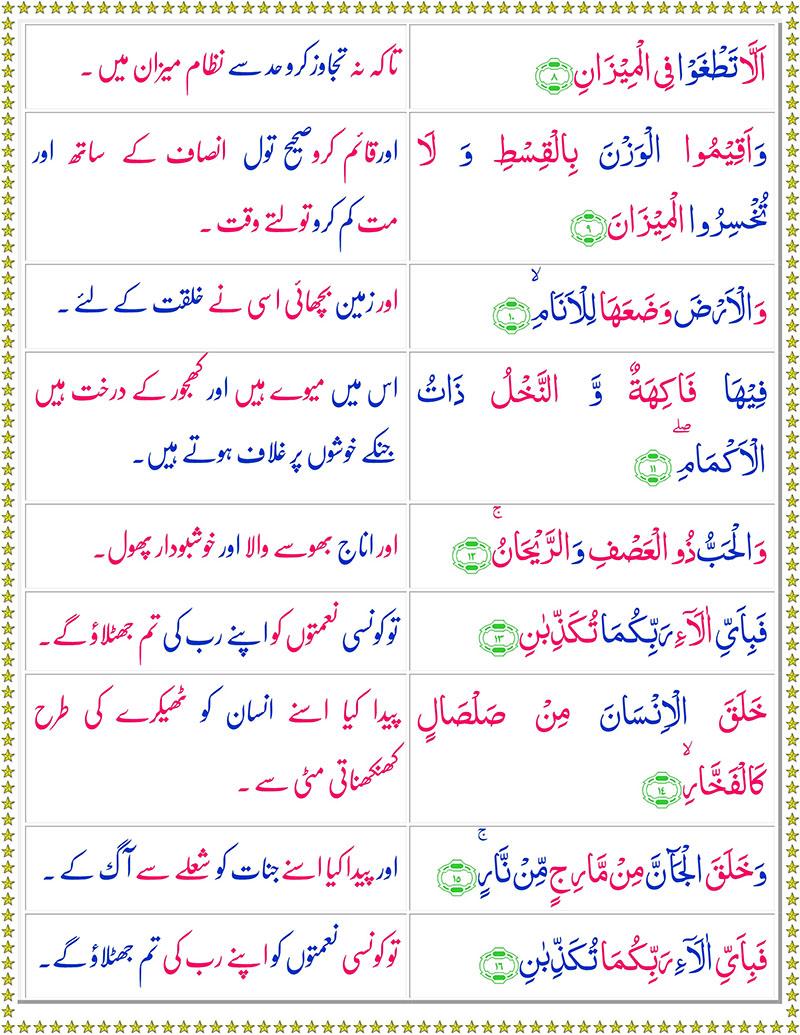 اَلَّا تَطْغَوْا فِی الْمِیْزَانِ ۸
تاکہ نہ تجاوز کرو حد سے نظام میزان میں ۔
وَاَقِیْمُوا الْوَزْنَ بِالْقِسْطِ وَ لَا
تُخْسِرُوا الْمِیْزَانَ ۹
اور قائم کرو صحیح تول انصاف کے ساتھ اور
مت کم کرو تولتے وقت ۔
وَالْاَرْضَ وَضَعَهَا لِلْاَنَامِ ۙ ۱۰
اور زمین بچھائی اسی نے خلقت کے لئے ۔
فِیْهَا فَاكِهَةٌ وَّ النَّخْلُ ذَاتُ
الْاَكْمَامِ ۖ ۱۱
اس میں میوے ہیں اور کھجور کے درخت ہیں
جنکے خوشوں پر غلاف ہوتے ہیں۔
وَالْحَبُّ ذُو الْعَصْفِ وَالرَّیْحَانُ ۚ ۱۲
اور اناج بھوسے والا اور خوشبودار پھول۔
فَبِاَیِّ اٰلَآءِ رَبِّكُمَا تُكَذِّبٰنِ ۱۳
تو کونسی نعمتوں کو اپنے رب کی تم جھٹلاؤ گے۔
خَلَقَ الْاِنْسَانَ مِنْ صَلْصَالٍ
كَالْفَخَّارِ ۙ ۱٤
پیدا کیا اسنے انسان کو ٹھیکرے کی طرح
کھنکھناتی مٹی سے ۔
وَخَلَقَ الْجَآنَّ مِنْ مَّارِجٍ مِّنْ نَّارٍ ۚ ۱۵
اور پیدا کیا اسنے جنات کو شعلے سے آگ کے ۔
فَبِاَیِّ اٰلَآءِ رَبِّكُمَا تُكَذِّبٰنِ ۱٦
تو کونسی نعمتوں کو اپنے رب کی تم جھٹلاؤ گے۔